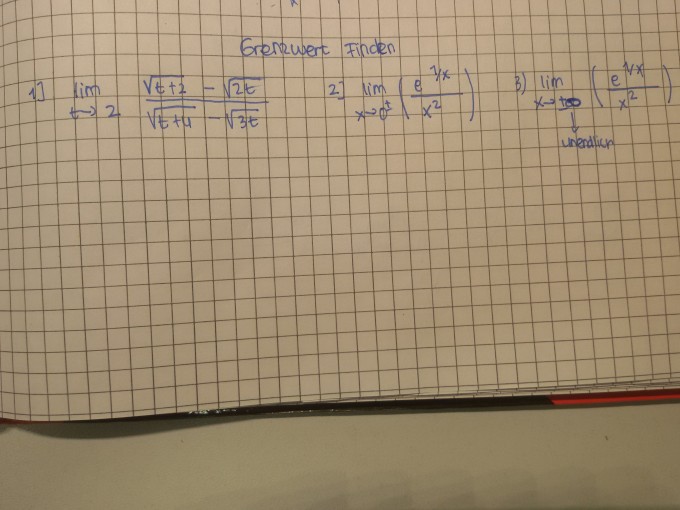 Grenzwert Finden
1] lim t→2 (√t+2 - √2t) / (√t+4 - √3t)
2] lim x→0± (e^1/x / x²)
3) lim x→±∞ (e^1/x / x²)
unendlich